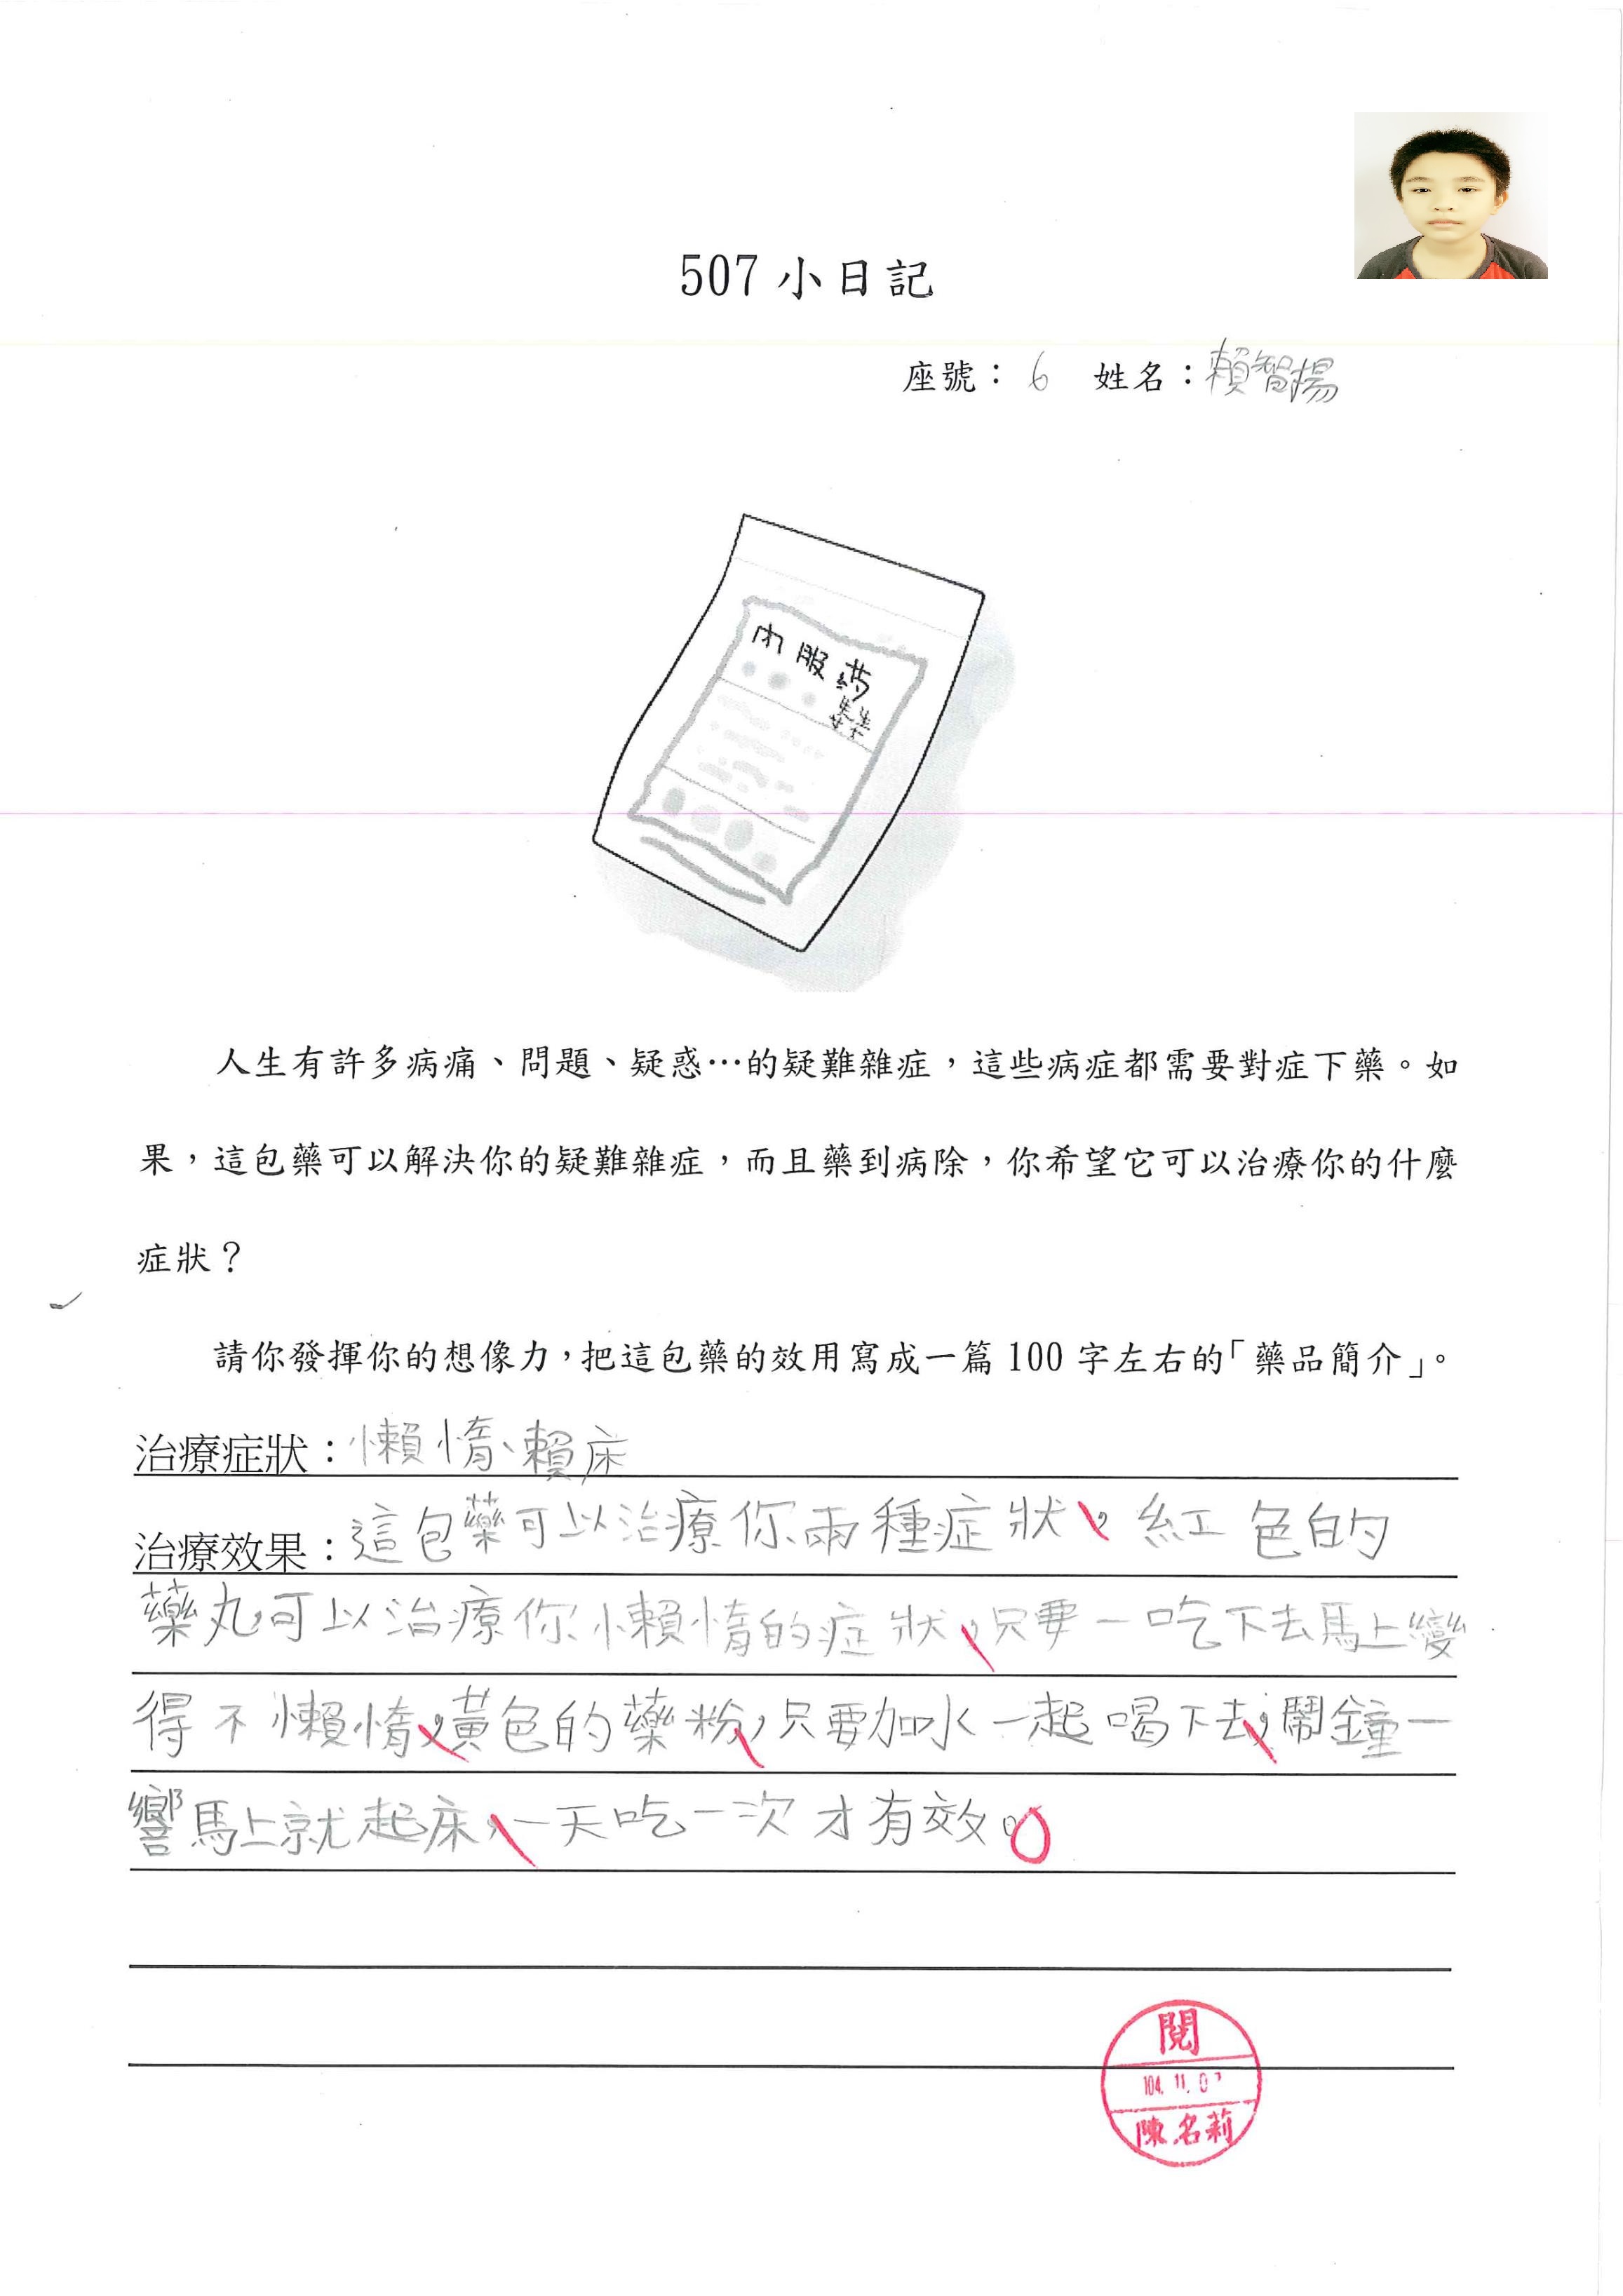 507小日記
座號：6 姓名：賴智楊
內服藥
人生有許多病痛、問題、疑惑…的疑難雜症，這些病症都需要對症下藥。如
果，這包藥可以解決你的疑難雜症，而且藥到病除，你希望它可以治療你的什麼
症狀？
請你發揮你的想像力，把這包藥的效用寫成一篇100字左右的「藥品簡介」。
治療症狀：懶惰、賴床
治療效果：這包藥可以治療你兩種症狀，紅色的
藥丸，可以治療你懶惰的症狀，只要一吃下去馬上變
得不懶惰，黃色的藥粉，只要加水一起喝下去，鬧鐘一
響馬上就起床，一天吃一次才有效。
閱
104.11.0
陳名莉